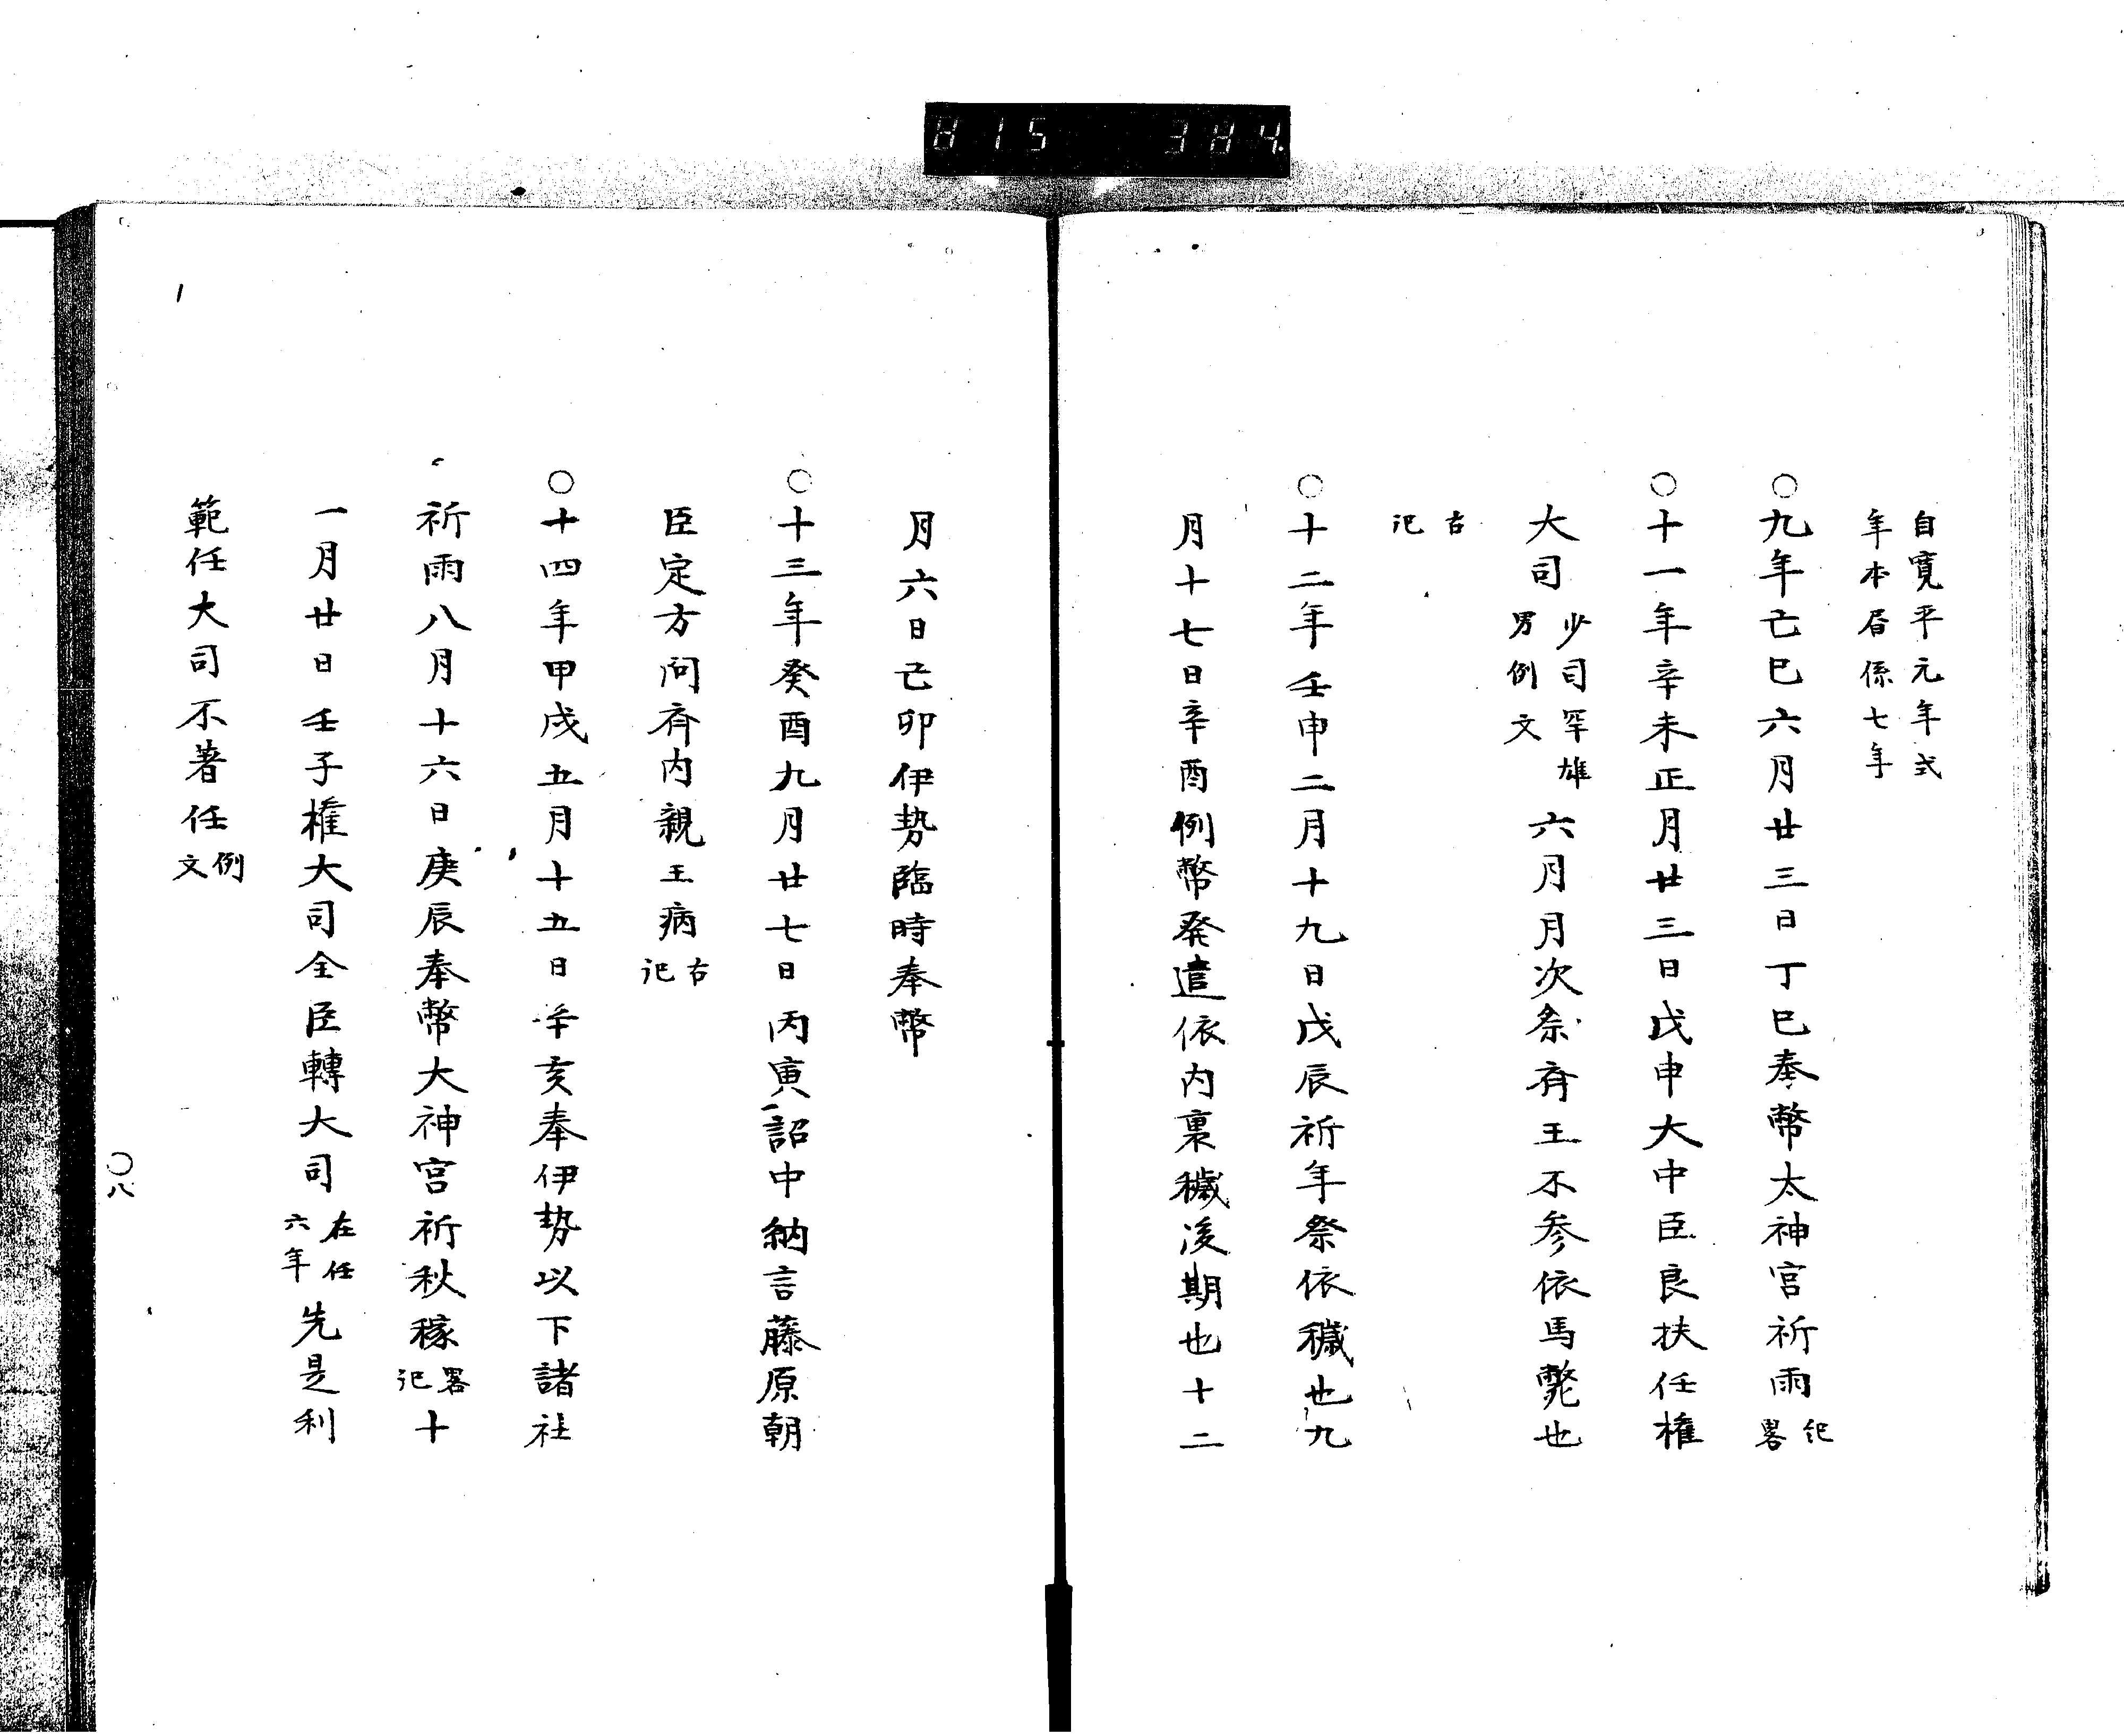 815 384.
自寛平元年或
年本眉係七年
○九年己巳六月廿三日丁巳奉幣太神宮祈雨 紀畧
○十一年辛未正月廿三日戊申大中臣良扶任権
大司 少司罕雄男例文 六月月次祭斉王不参依馬斃也
古記
○十二年壬申二月十九日戊辰祈年祭依穢也九
月十七日辛酉例幣発遣依内裏穢後期也十二
月六日己卯伊勢臨時奉幣
○十三年癸酉九月廿七日丙寅詔中納言藤原朝
臣定方問斉内親王病 古記
○十四年甲戌五月十五日辛亥奉伊勢以下諸社
祈雨八月十六日庚辰奉幣大神宮祈秋稼 畧記 十
一月廿日壬子権大司全臣轉大司 在任六年 先是利
範任大司不著任 例文
○八